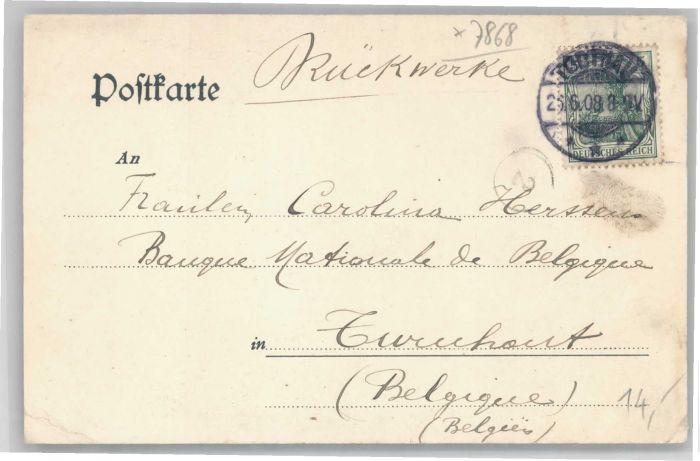 *7868
Drückwerke
Postkarte
25.6.08.8-9V
DEUTSCHES REICH
An
2
Fraulein Carolina Herssens
Banque Nationale de Belgique
in Turnhout
(Belgique)
14,
(Belgiës)